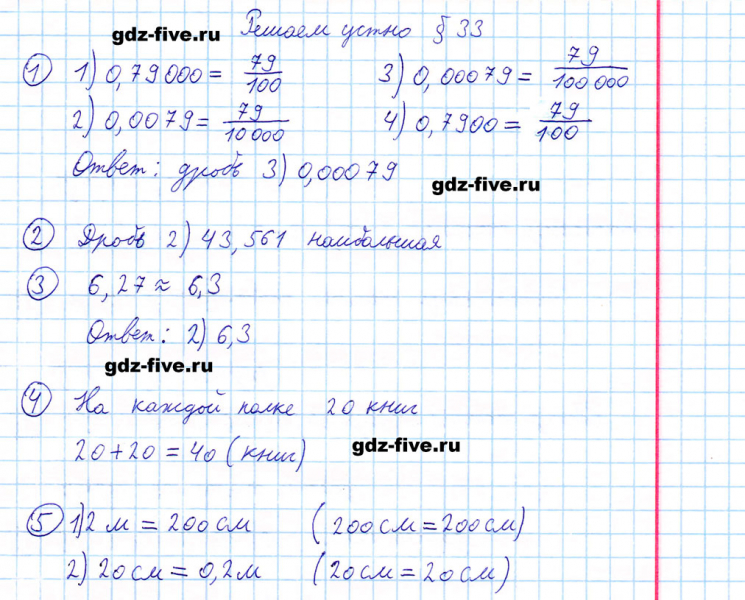 Решаем устно § 33
gdz-five.ru
① 1) 0,79000 = 79/100
3) 0,00079 = 79/100 000
2) 0,0079 = 79/10 000
4) 0,7900 = 79/100
Ответ: дробь 3) 0,00079
gdz-five.ru
② Дробь 2) 43,561 наибольшая
③ 6,27 ≈ 6,3
Ответ: 2) 6,3
gdz-five.ru
④ На каждой полке 20 книг
20 + 20 = 40 (книг)
gdz-five.ru
⑤ 1) 2 м = 200 см (200 см = 200 см)
2) 20 см = 0,2 м (20 см = 20 см)